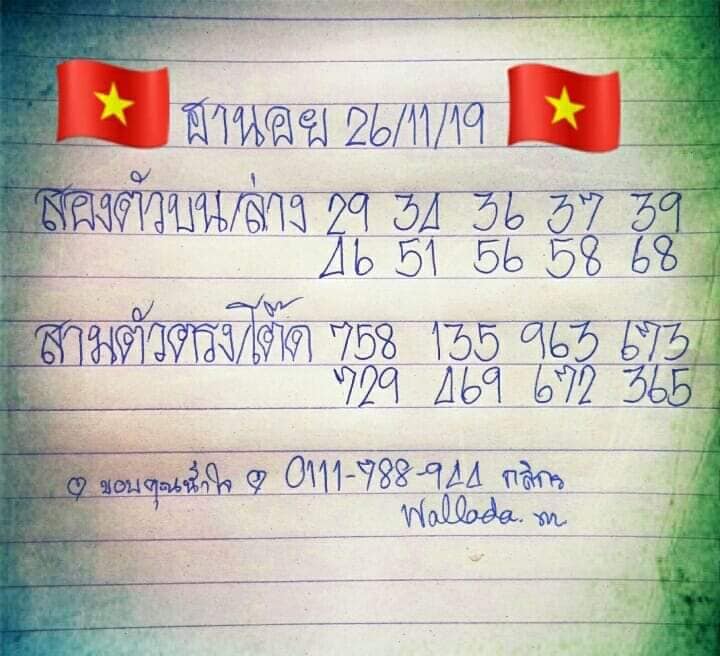 ฮานอย 26/11/19
สองตัวบน/ล่าง 29 34 36 37 39
46 51 56 58 68
สามตัวตรง/โต๊ด 758 135 963 673
729 469 672 365
ขอบคุณน้ำใจ 0111-788-944 กสิกร
Wallada. m